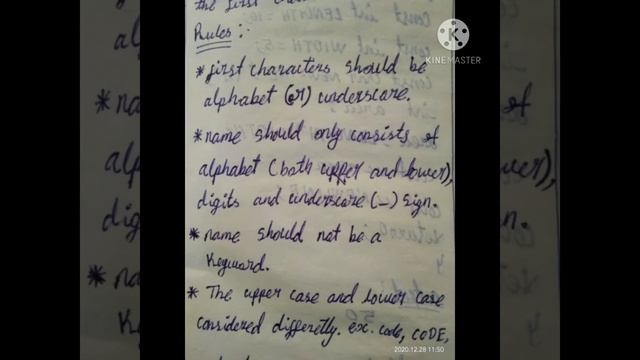 the first
Rules:-
* first characters should be
alphabet (or) underscore.
* name should only consists of
alphabet (both upper and lower),
digits and underscore (_) sign.
* name should not be a
keyword.
* The upper case and lower case
considered differetly. ex. code, CODE,
KINEMASTER
2020.12.28 11:50